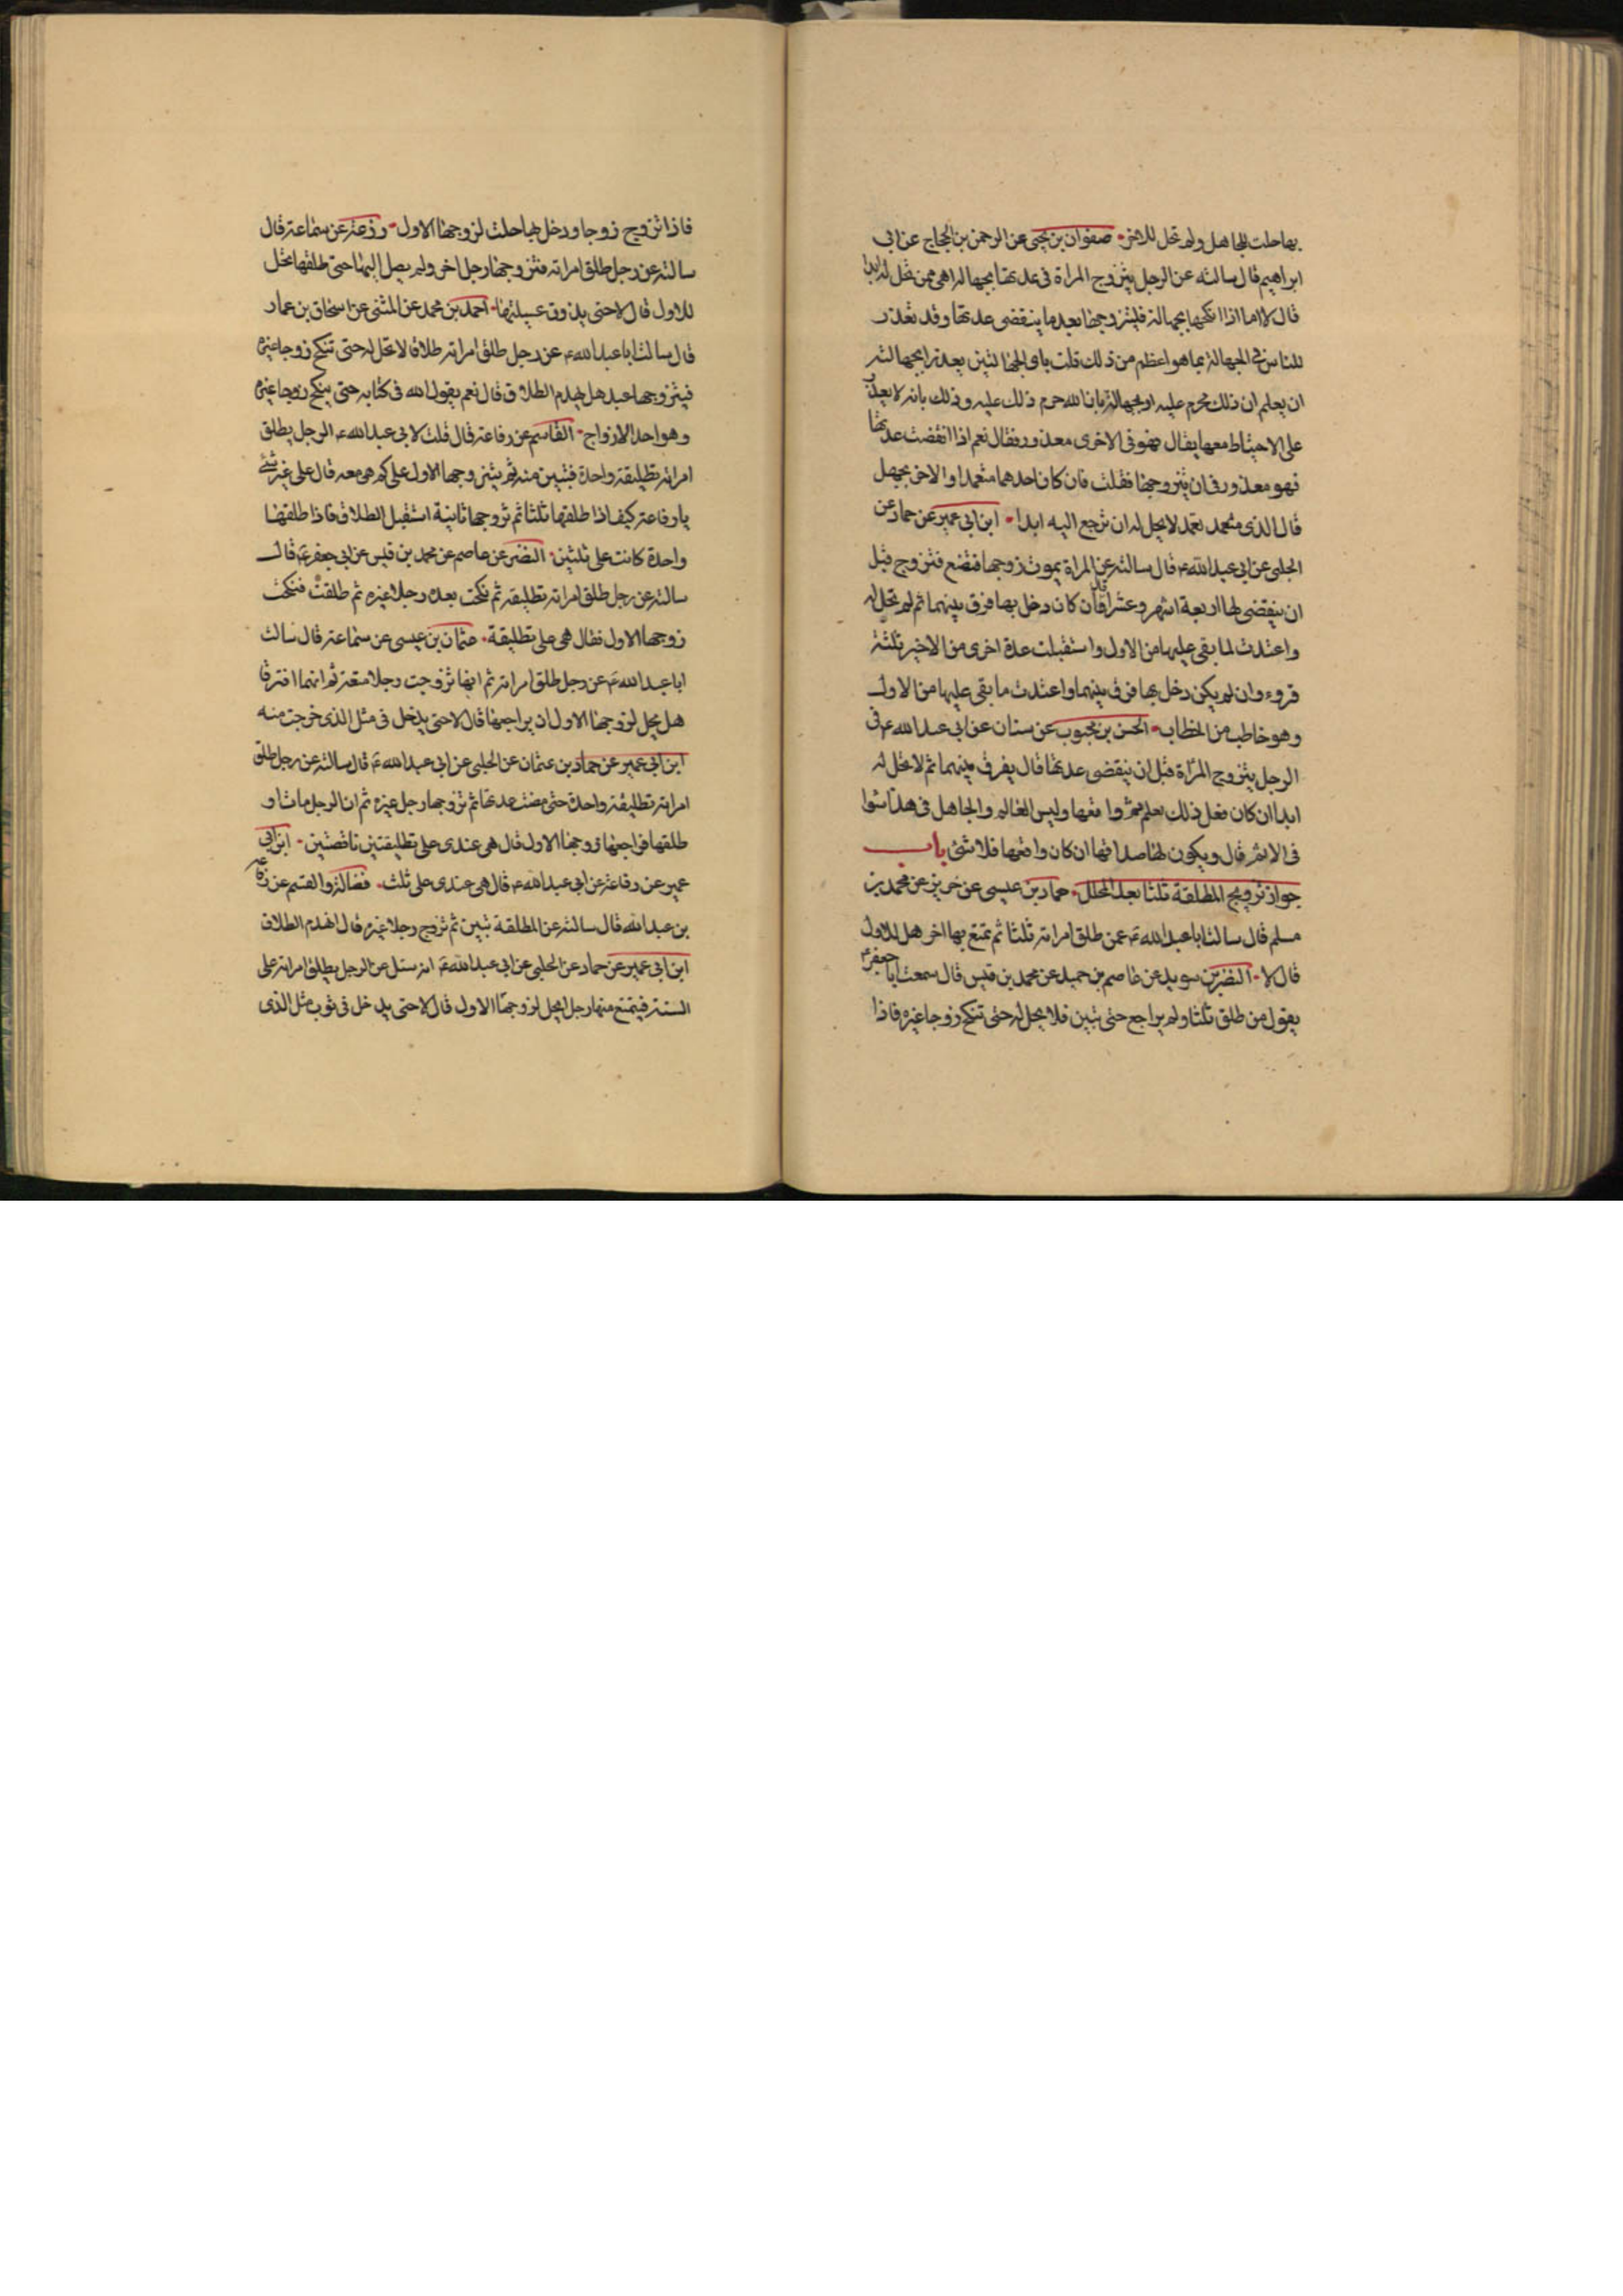 بها حلت للجاهل ولم تحل للاخر صفوان بن يحيى عن الرحمن بن الحجاج عن ابي
ابراهيم قال سالته عن الرجل يتزوج المراة في عدتها بجهالة اهى ممن تحل له ابدا
قال لا اما اذا نكحها بجهالة فليتزوجها بعد ما ينقضى عدتها وقد تعذر
للناس في الجهالة بما هو اعظم من ذلك قلت باى الجهالتين يعذر ابجهالته
ان يعلم ان ذلك محرم عليه او بجهالة بان الله حرم ذلك عليه وذلك بانه لا يعذر
على الاحتياط معها يقال فهو في الاخرى معذور فقال نعم اذا انقضت عدتها
فهو معذور في ان يتزوجها فقلت فان كان احدهما متعمدا والاخر بجهل
قال الذى متعمد تعمد لا يحل له ان ترجع اليه ابدا ابن ابي عمير عن حماد عن
الحلبي عن ابي عبد الله ع قال سالته عن المراة يموت زوجها فتضع فتزوج قبل
ان ينقضى لها اربعة اشهر وعشرا قال فان كان دخل بها فرق بينهما ثم لم تحل له
واعتدت لما بقى عليها من الاول واستقبلت عدة اخرى من الاخير ثلثة
قروء وان لم يكن دخل بها فرق بينهما واعتدت ما بقى عليها من الاول
وهو خاطب من الخطاب الحسن بن محبوب عن سنان عن ابي عبد الله ع في
الرجل يتزوج المراة قبل ان ينقضى عدتها قال يفرق بينهما ثم لا تحل له
ابدا ان كان فعل ذلك بعلم ثم واقعها وليس العالم والجاهل في هذا سوا
في الاثم قال ويكون لها صداقها ان كان واقعها فلا شئ باب
جواز تزويج المطلقة ثلثا بعد المحلل حماد بن عيسى عن حريز عن محمد بن
مسلم قال سالت ابا عبد الله ع عمن طلق امراته ثلثا ثم تمتع بها اخر هل للاول
قال لا النضر بن سويد عن عاصم بن حميد عن محمد بن قيس قال سمعت ابا جعفر ع
يقول من طلق ثلثا ولم يراجع حتى تبين فلا يحل له حتى تنكح زوجا غيره فاذا
فاذا تزوج زوجا ودخل بها حلت لزوجها الاول وزرعة عن سماعة قال
سالته عن رجل طلق امراته فتزوجها رجل اخر ولم يصل اليها حتى طلقها تحل
للاول قال لا حتى يذوق عسيلتها احمد بن محمد عن المثنى عن اسحاق بن عمار
قال سالت ابا عبد الله ع عن رجل طلق امراته طلاقا لا تحل له حتى تنكح زوجا غيره
فيتزوجها عبد هل يهدم الطلاق قال نعم يقول الله في كتابه حتى ينكح زوجا غيره
وهو احد الازواج القاسم عن رفاعة قال قلت لابي عبد الله ع الرجل يطلق
امراته تطليقة واحدة فتبين منه ثم يتزوجها الاول على كم هى معه قال على غير شئ
يا رفاعة كيف اذا طلقها ثلثا ثم تزوجها ثانية استقبل الطلاق فاذا طلقها
واحدة كانت على ثلثين النضر عن عاصم عن محمد بن قيس عن ابي جعفر ع قال
سالته عن رجل طلق امراته تطليقة ثم نكحت بعده رجلا غيره ثم طلقت فنكحت
زوجها الاول فقال هى على تطليقة عثمان بن عيسى عن سماعة قال سالت
ابا عبد الله ع عن رجل طلق امراته ثم انها تزوجت رجلا متعة ثم انهما افترقا
هل يحل لزوجها الاول ان يراجعها قال لا حتى يدخل في مثل الذى خرجت منه
ابن ابي عمير عن حماد بن عثمان عن الحلبي عن ابي عبد الله ع قال سالته عن رجل طلق
امراته تطليقة واحدة حتى مضت عدتها ثم تزوجها رجل غيره ثم ان الرجل مات او
طلقها فراجعها زوجها الاول قال هى عندى على تطليقتين ناقصتين ابن ابي
عمير عن رفاعة عن ابي عبد الله ع قال هى عندى على ثلث فضالة والقسم عن رفاعة
بن عبد الله قال سالته عن المطلقة تبين ثم تزوج رجلا غيره قال انهدم الطلاق
ابن ابي عمير عن حماد عن الحلبي عن ابي عبد الله ع انه سئل عن الرجل يطلق امراته على
السنة فيتمتع منها رجل ايحل لزوجها الاول قال لا حتى يدخل في ثوب مثل الذى